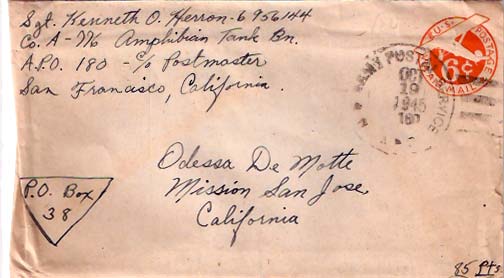 Sgt. Kenneth O. Herron - 6956144
Co. A - 776 Amphibian Tank Bn.
A.P.O. 180 - c/o Postmaster
San Francisco, California.
U.S. POSTAGE
6¢
AIR MAIL
ARMY POSTAL SERVICE
OCT
19
1945
A.P.O.
Odessa De Motte
Mission San Jose
California
P.O. Box
38
85